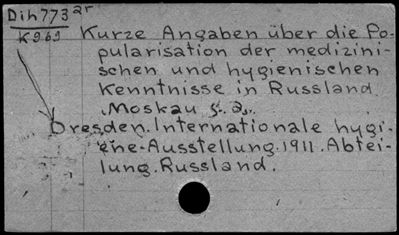 Dih773ar
K969 Kurze Angaben über die Po-
pularisation der medizini-
schen und hygienischen
Kenntnisse in Russland.
Moskau s. a.
Dresden. Internationale hygi-
ene-Ausstellung. 1911. Abtei-
lung. Russland.